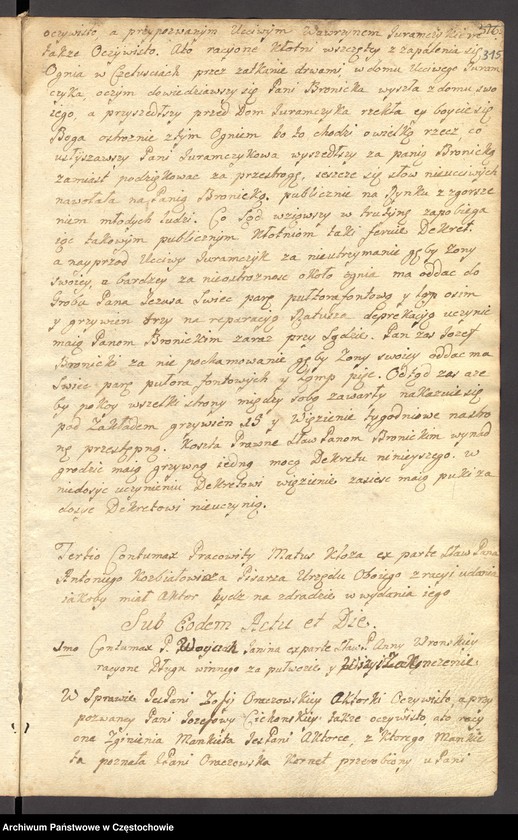 376.
395
oczywisto, a przypozwanym Uczciwym Wawrzynem Juramczykiem
także Oczywisto. Ato racyone Kłotni wszczętey z zapalenia się
Ognia w Czeluściach przez zatkanie drwami w domu Uczciwego Juram
czyka, o czym dowiedziawszy się Pani Bronicka wyszła z domu swo
iego, a przyszedłszy przed Dom Juramczyka rzekła ey boycie się
Boga ostroznie z tym Ogniem bo to chodzi o wielką rzecz, co
usłyszawszy Pani Juramczykowa wyszedłszy za panią Bronicką
zamiast podziękować za przestrogę, ieszcze się słow nieuczciwych
nawołała na Panią Bronicką publicznie na Rynku z zgorsze
niem młodych ludzi. Co Sąd wziąwszy w trutynę zapobiega
iąc takowym publicznym Kłotniom taki feruie Dekret.
a nayprzod Uczciwy Juramczyk za nieutrzymanie gęby Zony
swoiey, a bardziey za nieostrożnosc około ognia ma oddac do
Grobu Pana Jezusa Swiec parę pułtorafontową y łap osim
y grzywien trzy na reparacyą Ratusza deprekacyą uczynic
maią Panom Bronickim zaraz przy Sądzie. Pan zas Jozef
Bronicki za nie pochamowanie gęby Zony swoiey oddac ma
Swiec parę pułtora fontowych y lamp pięc. Odtąd zas aze
by pokoy wszelki strony między sobą zawarły nakazuie się
pod Zakładem grzywien 15 y Więzienie tygodniowe na stro
nę przestępną. Koszta Prawne Sław Panom Bronickim wynad
grodzic maią grzywną iedną mocą Dekretu ninieyszego. w
niedosyc uczynieniu Dekretowi więzienie zasiesc maią puki za
dosyc Dekretowi nieuczynią.
Tertio Contumax Pracowity Matus Kłoza ex parte Sław Pana
Antoniego Kozbiałowicza Pisarza Urzędu Oboiego z racyi udania
iakoby miał Aktor bydz na zdradzie w wydania iego
Sub Eodem Actu et Die.
1mo Contumax P. Woyciech Janina ex parte Sław. P. Anny Wronskiey
racyone Długu winnego za pułwocie y
W Sprawie JeyPani Zofij Oraczowskiey Aktorki Oczywisto, a przy
pozwaney Pani Jozefowy Cichonskiey także oczywisto, ato racy
one Zginienia Mankieta JeyPani Aktorce, z Ktorego Mankie
ta poznała JPani Oraczowska Kornet przerobiony u Pani
Archiwum Państwowe w Częstochowie